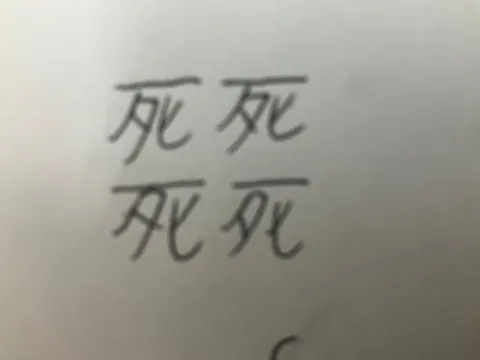 死死
死死